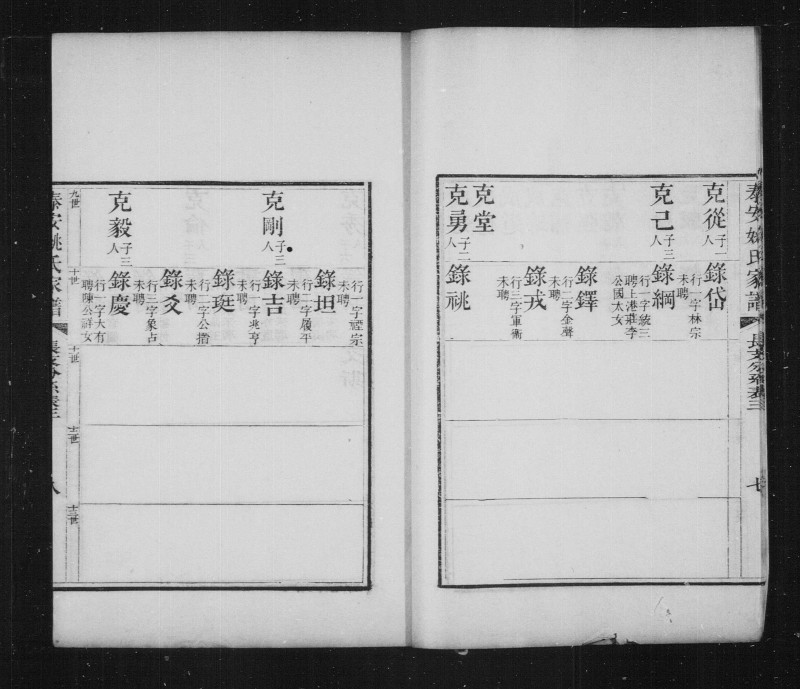 泰安姚氏家譜
長支分系表三
七
克從
子一人
錄岱
行一字林宗
未聘
克己
子三人
錄綱
行一字統三
聘上港莊李
公國太女
錄鐸
行二字金聲
未聘
錄戎
行三字軍衛
未聘
克堂
克勇
子二人
錄祧
行一字禋宗
未聘
錄坦
行二字履平
未聘
克剛
子三人
錄吉
行一字兆亨
未聘
錄珽
行二字公搢
未聘
錄爻
行三字象占
未聘
克毅
子三人
錄慶
行一字大有
聘陳公辭女
九世
十世
十一世
十二世
十三世
泰安姚氏家譜
長支分系表三
八